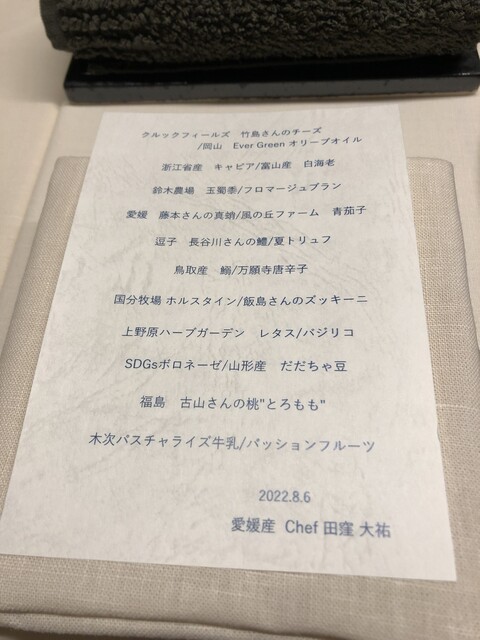 クルックフィールズ　竹島さんのチーズ
/岡山　Ever Green オリーブオイル
浙江省産　キャビア/富山産　白海老
鈴木農場　玉蜀黍/フロマージュブラン
愛媛　藤本さんの真蛸/風の丘ファーム　青茄子
逗子　長谷川さんの鱧/夏トリュフ
鳥取産　鰯/万願寺唐辛子
国分牧場 ホルスタイン/飯島さんのズッキーニ
上野原ハーブガーデン　レタス/バジリコ
SDGsボロネーゼ/山形産　だだちゃ豆
福島　古山さんの桃"とろもも"
木次パスチャライズ牛乳/パッションフルーツ
2022.8.6
愛媛産 Chef 田窪 大祐